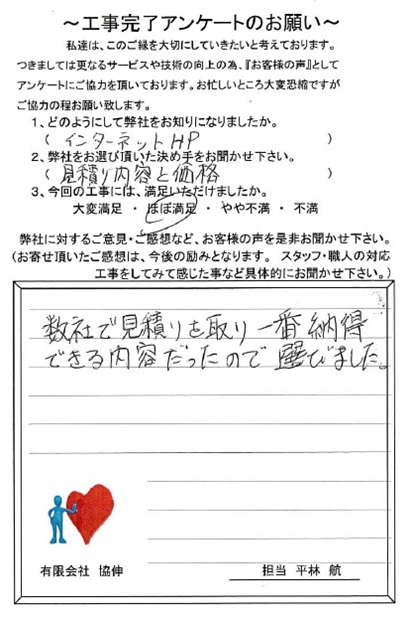 ～工事完了アンケートのお願い～
私達は、このご縁を大切にしていきたいと考えております。
つきましては更なるサービスや技術の向上の為、『お客様の声』として
アンケートにご協力を頂いております。お忙しいところ大変恐縮ですが
ご協力の程お願い致します。
1、どのようにして弊社をお知りになりましたか。
（ インターネットHP ）
2、弊社をお選び頂いた決め手をお聞かせ下さい。
（ 見積り内容と価格 ）
3、今回の工事には、満足いただけましたか。
大変満足 ・ ほぼ満足 ・ やや不満 ・ 不満
弊社に対するご意見・ご感想など、お客様の声を是非お聞かせ下さい。
（お寄せ頂いたご感想は、今後の励みとなります。 スタッフ・職人の対応
工事をしてみて感じた事など具体的にお聞かせ下さい。）
数社で見積りを取り一番納得
できる内容だったので選びました。
有限会社 協伸
担当 平林 航